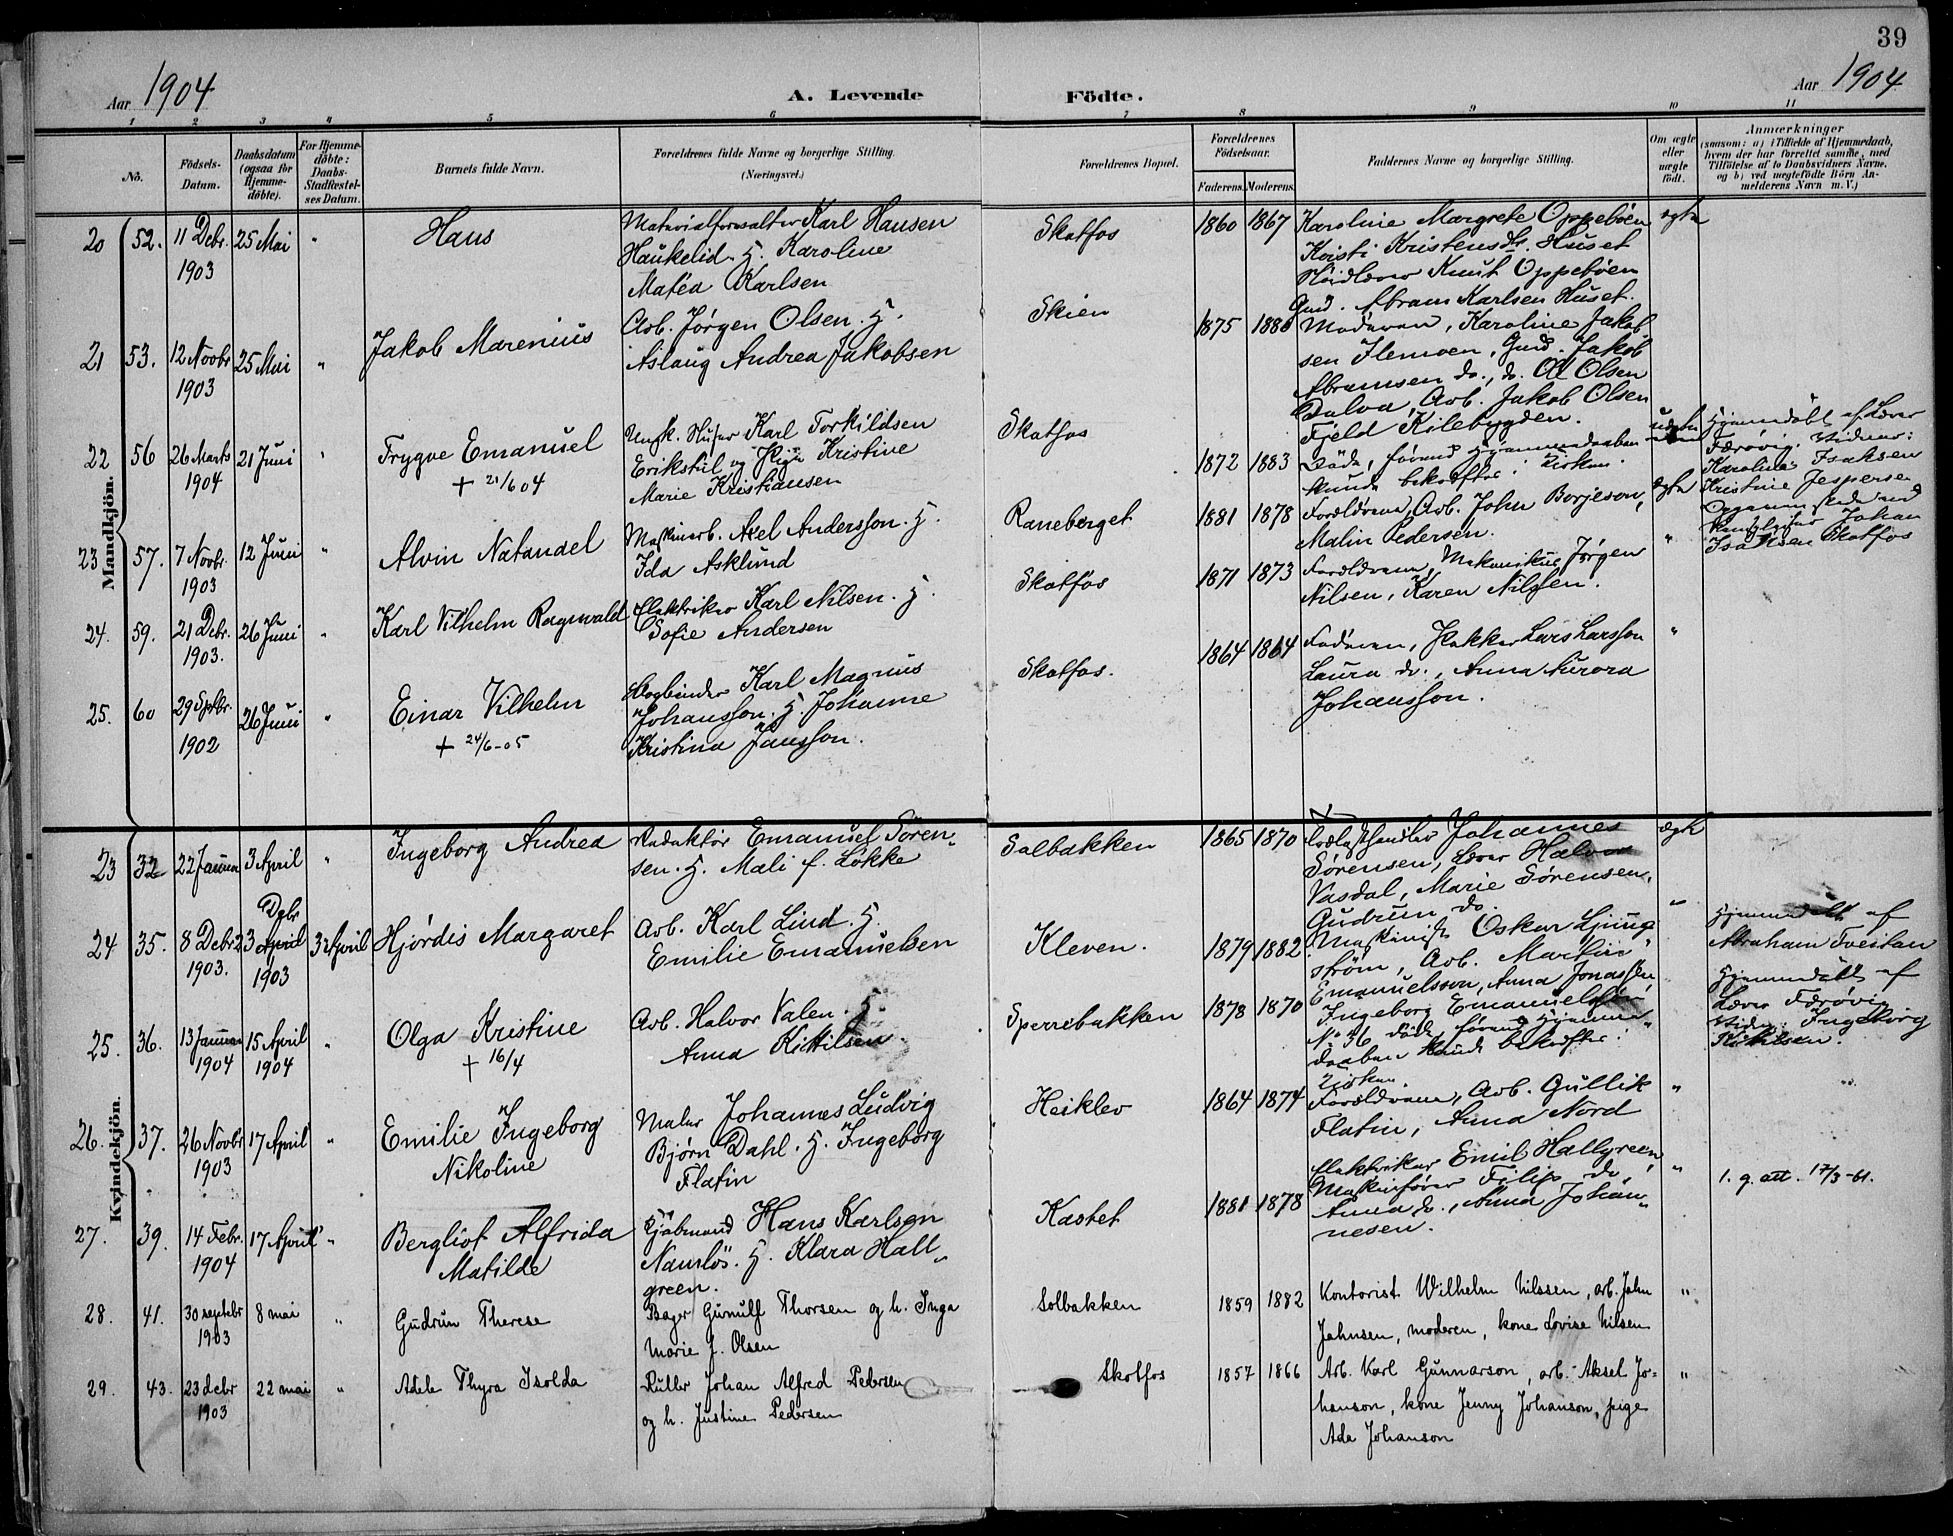 39
Aar 1904
A. Levende Födte.
Aar 1904
1 2 3 4 5 6 7 8 9 10 11
No.
Födsels-
Datum.
Daabsdatum
(ogsaa for
Hjemme-
döbte).
For Hjemme-
döbte:
Daabs-
Stadfæstel-
ses Datum.
Barnets fulde Navn.
Forældrenes fulde Navne og borgerlige Stilling.
(Næringsvei.)
Forældrenes Bopæl.
Forældrenes
Födselsaar.
Faderens. Moderens.
Faddernes Navne og borgerlige Stilling.
Om ægte
eller
uægte
födt.
Anmærkninger
(saasom: a) i Tilfælde af Hjemmedaab,
hvem der har forrettet samme, med
Tilföielse af to Daabsvidners Navne,
og b) ved uægtefödte Börn An-
melderens Navn m. V.)
Mandkjön.
20 52. 11 Debr. 25 Mai "
1903
Hans
Materialforvalter Karl Hansen
Haukelid. H. Karoline
Matea Karlsen
Skotfos
1860 1867
Karoline Margrete Oppebøen
Kristi Kristensdt. Huset
Knut Oppebøen
Gmd. Abram Karlsen Huset.
ægte
21 53. 12 Novbr 25 Mai "
1903
Jakob Marenius
Arb. Jørgen Olsen. H.
Aslaug Andrea Jakobsen
Skien
1875 188
Moderen, Karoline Jakob
sen Flemoen, Gmd. Jakob
Abramsen do., do. Ol Olsen
Dalva, Arb. Jakob Olsen
Fjeld Kilebygden.
22 56 26 Marts 21 Juni "
1904
Trygve Emanuel
+ 21/6 04
Ungk. Karl Torkildsen
Erikstul og Pige Kristine
Marie Kristiansen
Skotfos
1872 1883
Døde, førend Hjemmedaaben
kunde bekræftes i Kirken.
Hjemmedøbt af Lærer
Færøvig. Vidner:
Karoline Isaksen
Kristine Jespersen
Johan
Isaksen Skotfos
23 57. 7 Novbr. 12 Juni "
1903
Alvin Natanael
Maskinarb. Axel Andersson. H.
Ida Asklund
Raneberget
1881 1878
Forældrene, Arb. John Borjeson,
Malin Pedersen.
ægte
24. 59. 21 Debr. 26 Juni "
1903.
Karl Vilhelm Ragnvald
Elektriker Karl Nilsen. H.
Sofie Andersen
Skotfos
1871 1873
Forældrene, Mekanikus Jørgen
Nilsen, Karen Nilsen.
"
25. 60 29 Septbr. 26 Juni "
1902
Einar Vilhelm
+ 24/6-05
Bogbinder Karl Magnus
Johansson. H. Johanne
Kristina Jansson.
Skotfos.
1864 1864
Faderen, Pakker Lars Larsson
Laura do., Anna Aurora
Johansson.
"
Kvindekjön.
23 32 22 Januar 3 April "
Ingeborg Andrea
Redaktør Emanuel Søren-
sen. H. Mali f. Løkke
Solbakken
1865 1870
Johannes
Sørensen, Lærer Halvor
Vasdal, Marie Sørensen,
Gudrun do.
ægte
24 35. 8 Debr. 3 April 3 April
1903. Debr 1903
Hjørdis Margaret
Arb. Karl Lind. H.
Emilie Emanuelsen
Kleven.
1879 1882
Maskinist Oskar Ljung
strøm, Arb. Martin
Emanuelsson, Anna Jonassen,
Ingeborg Emanuelsson
"
Hjemmedøbt af
Abraham Tveitan
25. 36. 13 Januar 15 April "
1904 1904
Olga Kristine
+ 16/4
Arb. Halvor Valen. H.
Anna Kittilsen.
Sperrebakken
1878 1870
No 36 døde, førend Hjemme
daaben kunde bekræftes i
Kirken.
"
Hjemmedøbt af
Lærer Færøvig
Vidn. Ingeborg
Kittilsen.
26. 37. 26 Novbr 17 April "
1903
Emilie Ingeborg
Nikoline
Maler Johannes Ludvig
Bjørn Dahl. H. Ingeborg
Flatin
Heiklev
1864 1874
Forældrene, Arb. Gullik
Flatin, Anna Nord
"
27. 39. 14 Febr. 17 April "
1904
Bergliot Alfrida
Matilde
Hans Karlsen
Namløs. H. Klara Hall-
green.
Kastet
1881 1878
Elektriker Emil Hallgreen,
Maskinfører Filip do.,
Anna do., Anna Johan-
nesen.
"
1. g. att. 17/3-61.
28. 41. 30 septbr 8 mai "
1903
Gudrun Therese
Bager Gunulf Thorsen og h. Inga
Marie f. Olsen
Solbakken
1859 1882
Kontorist Wilhelm Nilssen, arb. John
Johnsen, moderen, kone Lovise Nilsen
"
29. 43. 23 debr 22 mai "
1903
Adele Thyra Isolda
Ruller Johan Alfred Pedersen
og h. Justine Pedersen
Skotfos
1857 1866
Arb. Karl Gunnarson, arb. Aksel Jo-
hanson, kone Jenny Johanson, pige
Ada Johanson
"